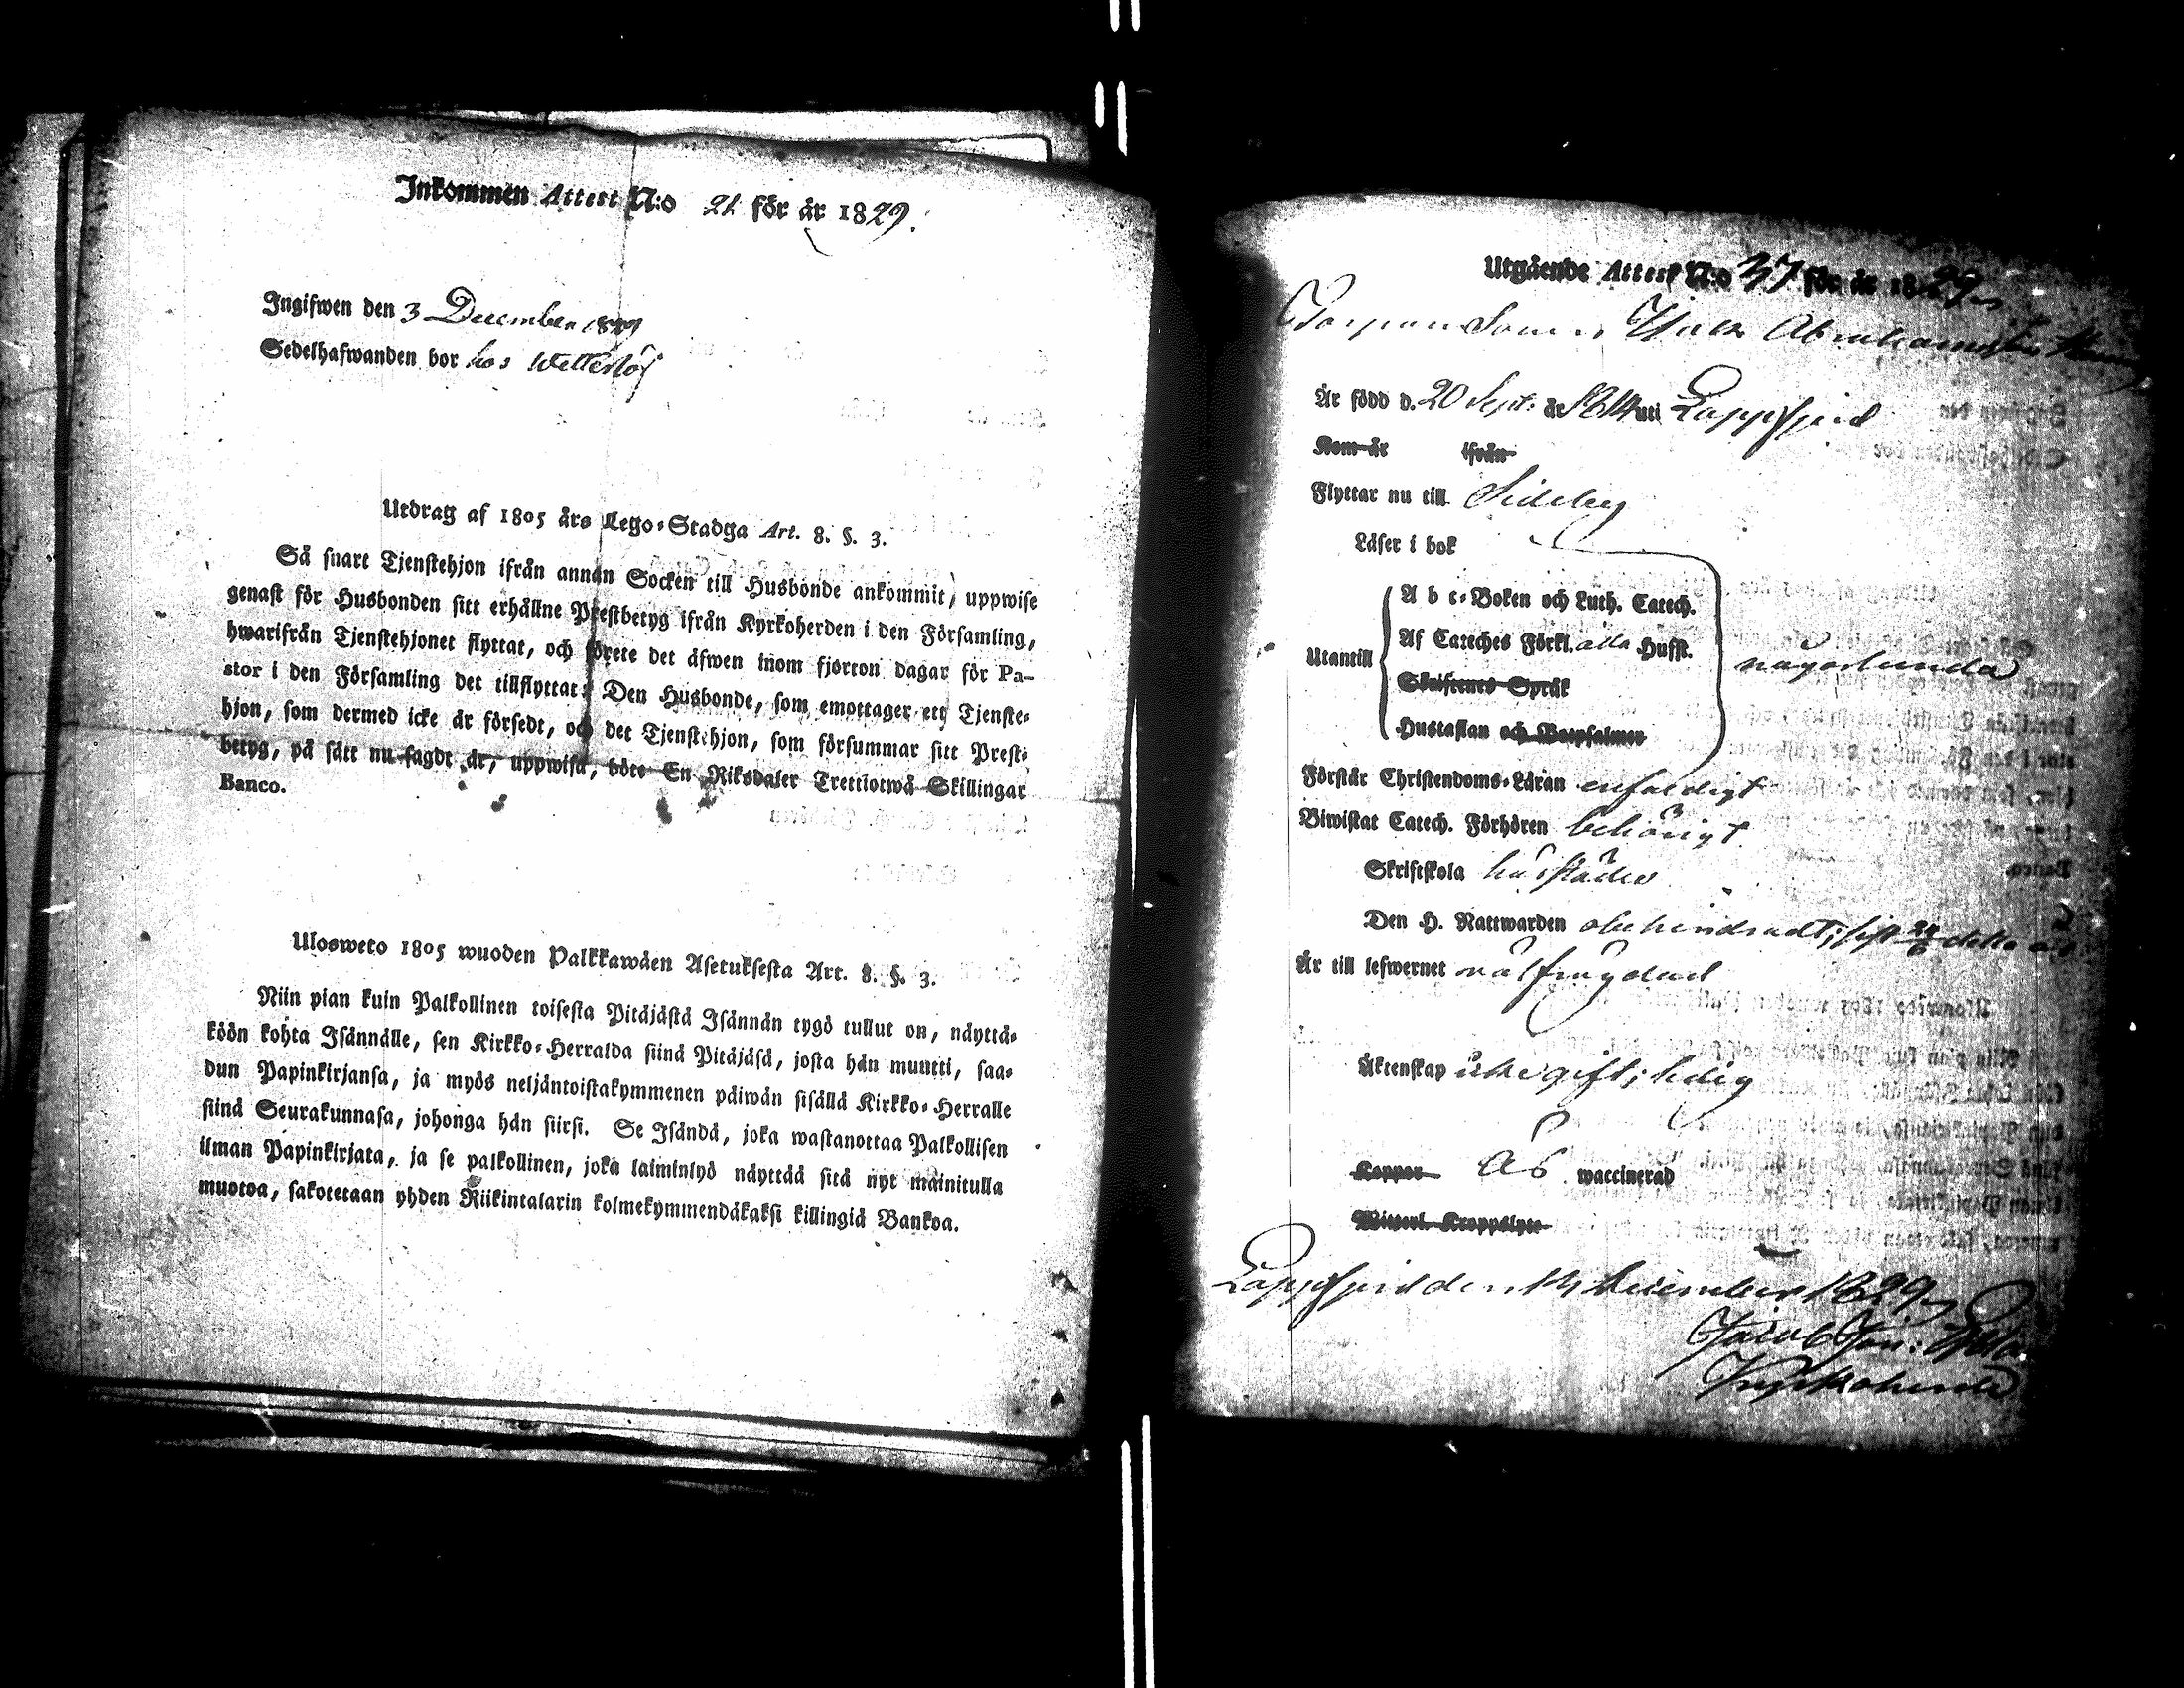 Inkommen Attest N:o 21 för år 1829.
Ingifwen den 3 December 1829
Sedelhafwanden bor hos Wetterlöf
Utdrag af 1805 års Lego-Stadga Art. 8. §. 3.
Så snart Tjenstehjon ifrån annan Socken till Husbonde ankommit, uppwise
genast för Husbonden sitt erhållne Prestbetyg ifrån Kyrkoherden i den Församling,
hwarifrån Tjenstehjonet flyttat, och förete det äfwen inom fjorton dagar för Pa-
stor i den Församling det tillflyttat: Den Husbonde, som emottager ett Tjenste-
hjon, som dermed icke är försedt, och det Tjenstehjon, som försummar sitt Prest-
betyg, på sätt nu sagdt är, uppwisa, böte En Riksdaler Trettiotwå Skillingar
Banco.
Ulosweto 1805 wuoden Palkkawäen Asetuksesta Art. 8. §. 3.
Niin pian kuin Palkollinen toisesta Pitäjästä Isännän tygö tullut on, näyttä-
köön kohta Isännälle, sen Kirkko-Herralda siinä Pitäjäsä, josta hän muutti, saa-
dun Papinkirjansa, ja myös neljäntoistakymmenen päiwän sisällä Kirkko-Herralle
siinä Seurakunnasa, johonga hän siirsi. Se Isändä, joka wastanottaa Palkollisen
ilman Papinkirjata, ja se palkollinen, joka laiminlyö näyttää sitä nyt mainitulla
muotoa, sakotetaan yhden Riikintalarin kolmekymmendäkaksi killingiä Bankoa.
Utgående Attest N:o 37 för år 1829
Abrahamsson
Är född d. 20 Sept. år 1814 uti Lappfjerd
Kom år ifrån
Flyttar nu till Sideby
Läser i bok
Utantill
A b c-Boken och Luth. Catech.
Af Cateches Förkl. alla Hufst.
Skriftenes Språk
Hustaflan och Botpsalmer
någorlunda
Förstår Christendoms-Läran enfaldigt
Biwistat Catech. Förhören behörigt
Skriftskola
Den H. Nattwarden obehindradt; sist detta år
Är till lefwernet välfrägdad
Äktenskap icke gift; ledig
Koppor Är waccinerad
Wissert. Kroppslyte
Lappfjerd den 14 December 1829
Jacob
Kyrkoherde